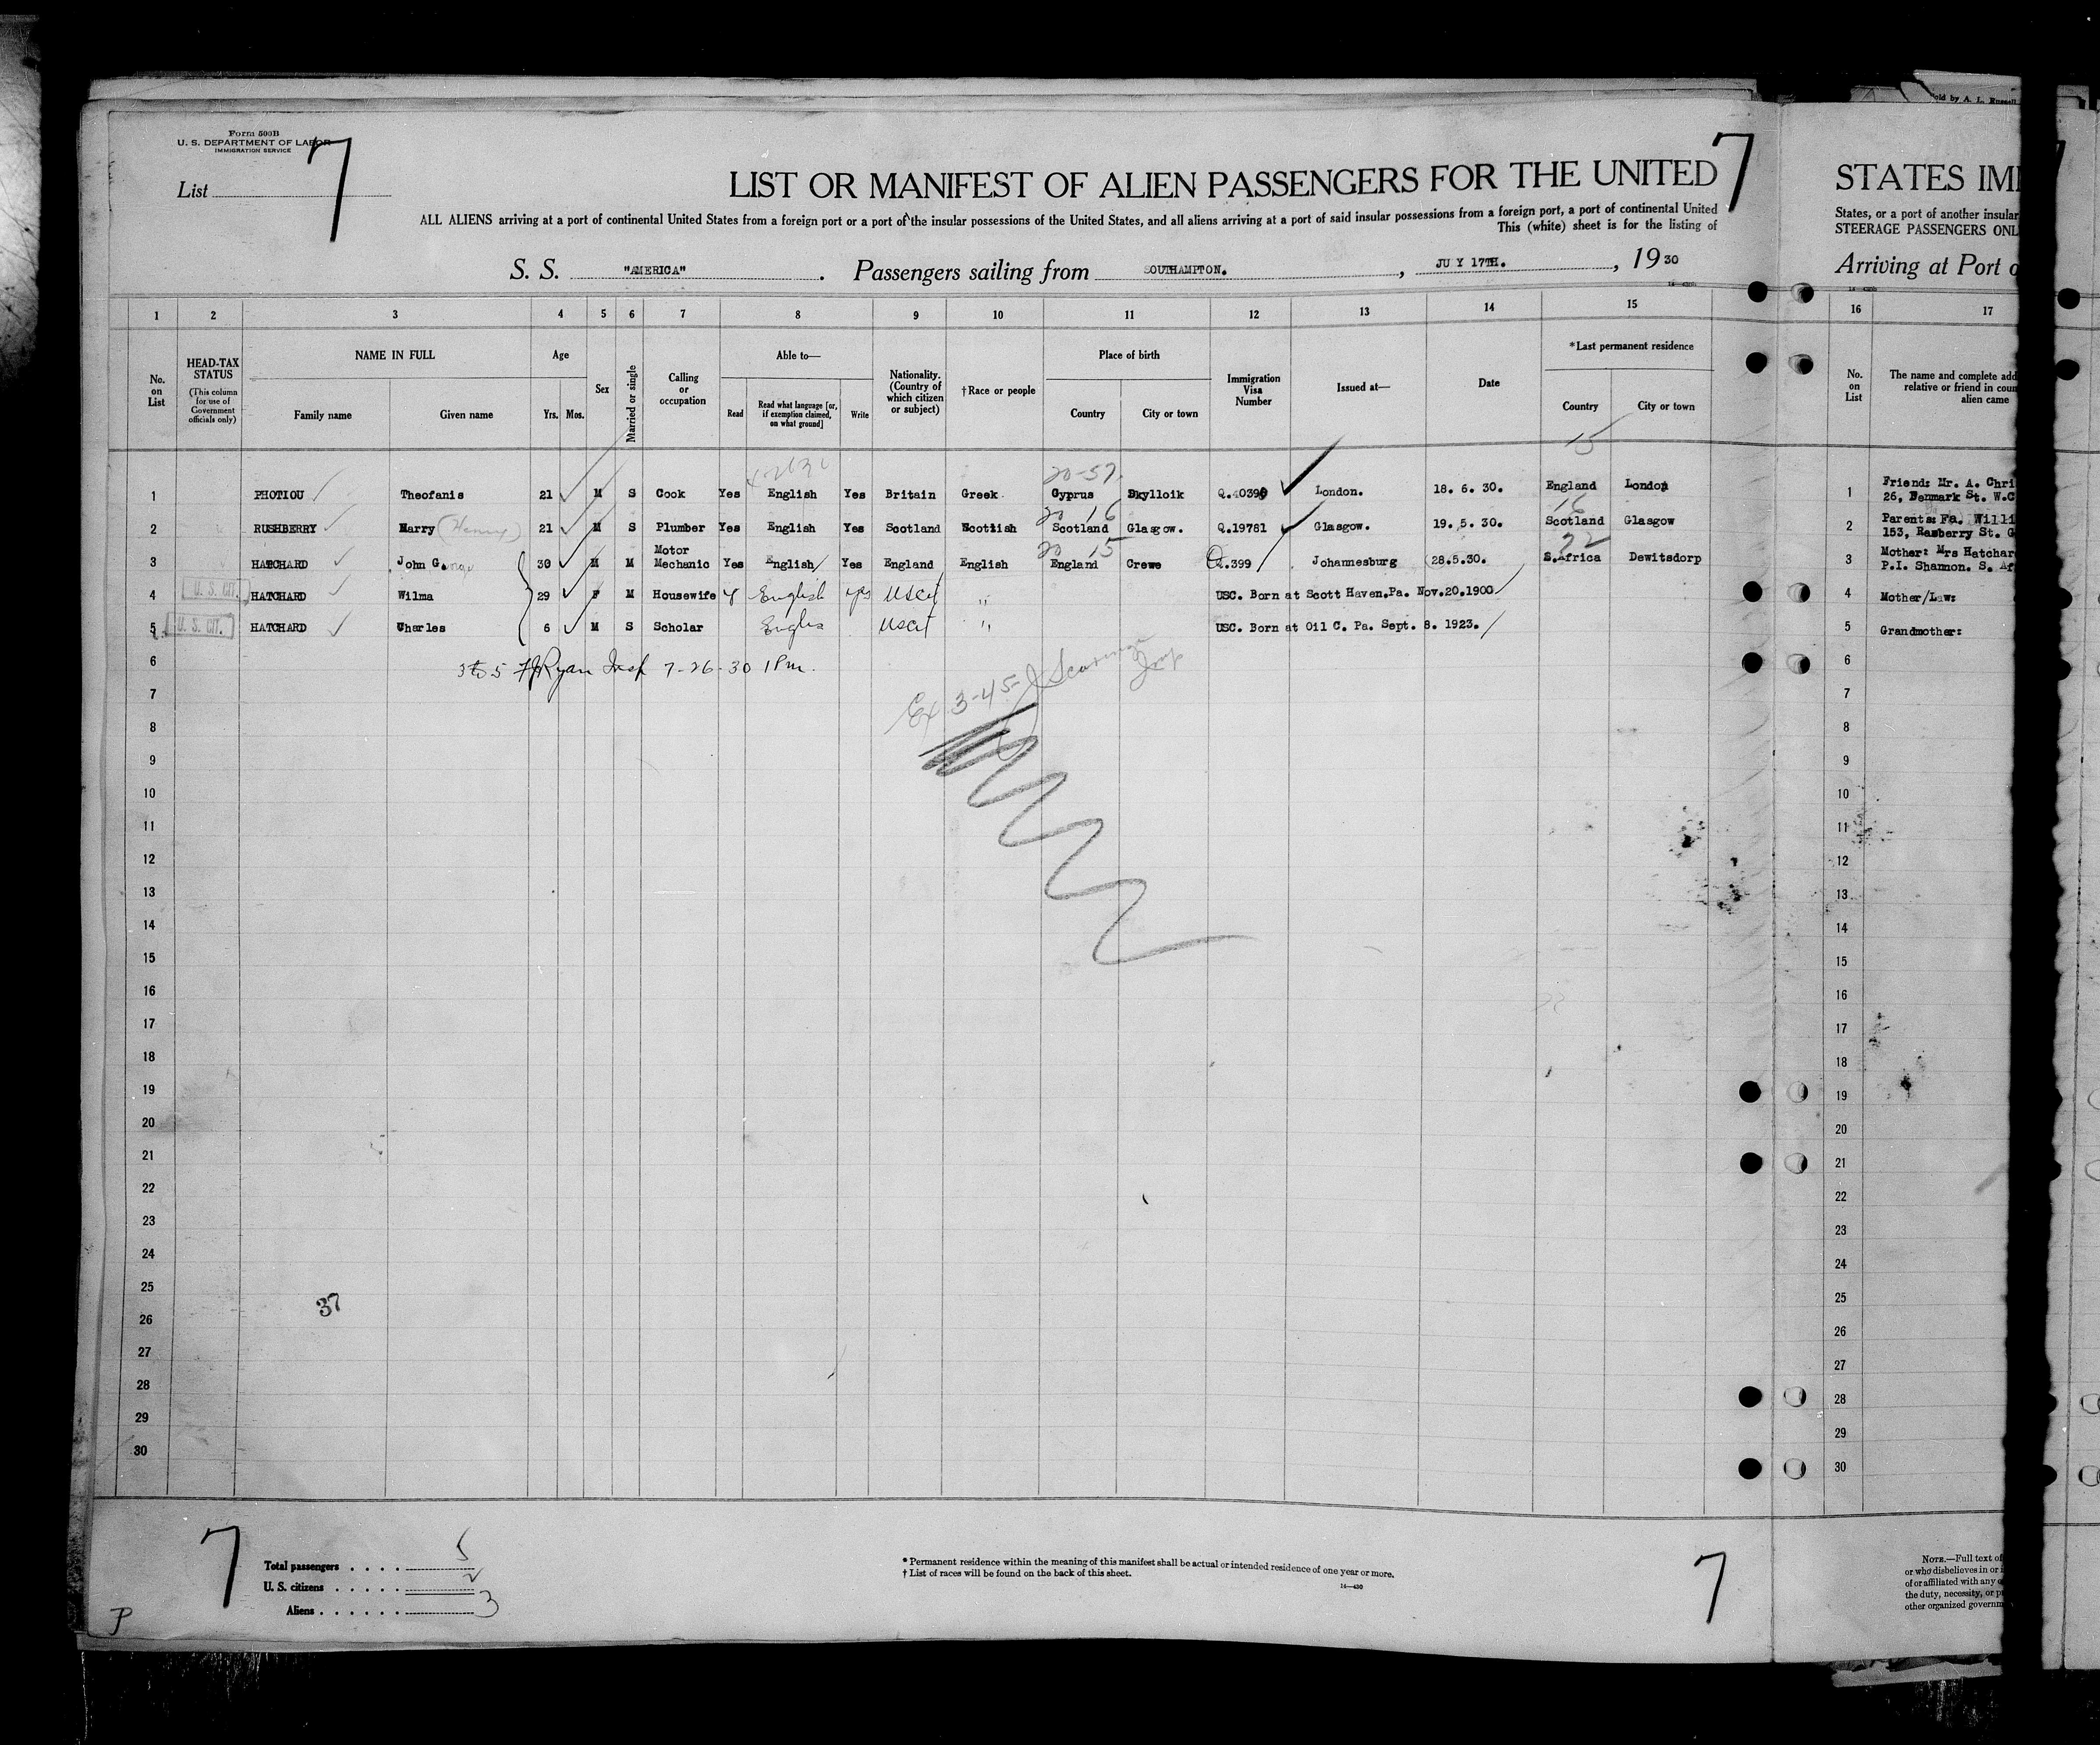 Form 500B
U. S. DEPARTMENT OF LABOR
IMMIGRATION SERVICE
List 7
7
LIST OR MANIFEST OF ALIEN PASSENGERS FOR THE UNITED
ALL ALIENS arriving at a port of continental United States from a foreign port or a port of the insular possessions of the United States, and all aliens arriving at a port of said insular possessions from a foreign port, a port of continental United
This (white) sheet is for the listing of
S. S. "AMERICA" . Passengers sailing from SOUTHAMPTON. , JU Y 17TH. , 19 30
STATES IMI
States, or a port of another insular
STEERAGE PASSENGERS ONL
Arriving at Port o
old by A. L. Russell
1 2 3 4 5 6 7 8 9 10 11 12 13 14 15 16 17
No. on List
HEAD-TAX STATUS (This column for use of Government officials only)
NAME IN FULL
Family name Given name
Age
Yrs. Mos.
Sex
Married or single
Calling or occupation
Able to—
Read Read what language [or, if exemption claimed, on what ground] Write
Nationality. (Country of which citizen or subject)
†Race or people
Place of birth
Country City or town
Immigration Visa Number
Issued at—
Date
*Last permanent residence
Country City or town
No. on List
The name and complete add
relative or friend in coun
alien came
15
20-57
1 PHOTIOU Theofanis 21 M S Cook Yes English Yes Britain Greek. Cyprus Skylloik Q.40390 London. 18. 6. 30. England London 1 Friend: Mr. A. Chri
26, Denmark St. W.C
20 16 16
2 RUSHBERRY Harry (Henry) 21 M S Plumber Yes English Yes Scotland Scottish Scotland Glasgow. Q.19781 Glasgow. 19. 5. 30. Scotland Glasgow 2 Parents: Fa. Willi
153, Ramberry St. G
20 15 22
3 HATCHARD John George 30 M M Motor Mechanic Yes English Yes England English England Crewe Q.399 Johannesburg 28.5.30. S.Africa Dewitsdorp 3 Mother: Mrs Hatchar
P.I. Shannon. S. Af
4 U. S. CIT. HATCHARD Wilma 29 F M Housewife Y English yes USCit " USC. Born at Scott Haven,Pa. Nov.20.1900 4 Mother/Law:
5 U. S. CIT. HATCHARD Charles 6 M S Scholar Englis USCit " USC. Born at Oil C. Pa. Sept. 8. 1923. 5 Grandmother:
6 3 to 5 Ryan Insp 7-26-30 1 Pm. 6
7 Ex 3-45 7
8 8
9 9
10 10
11 11
12 12
13 13
14 14
15 15
16 16
17 17
18 18
19 19
20 20
21 21
22 22
23 23
24 24
25 25
37
26 26
27 27
28 28
29 29
30 30
7
Total passengers . . . . 5
U. S. citizens . . . . . 2
Aliens . . . . . . 3
P
* Permanent residence within the meaning of this manifest shall be actual or intended residence of one year or more.
† List of races will be found on the back of this sheet.
14—430
7
NOTE.—Full text of
or who disbelieves in or i
of or affiliated with any o
the duty, necessity, or p
other organized governm